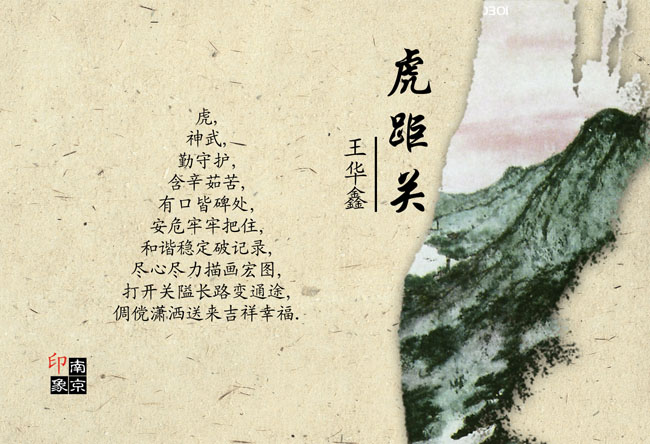 虎距关
王华鑫
虎,
神武,
勤守护,
含辛茹苦,
有口皆碑处,
安危牢牢把住,
和谐稳定破记录,
尽心尽力描画宏图,
打开关隘长路变通途,
倜傥潇洒送来吉祥幸福.
南京
印象